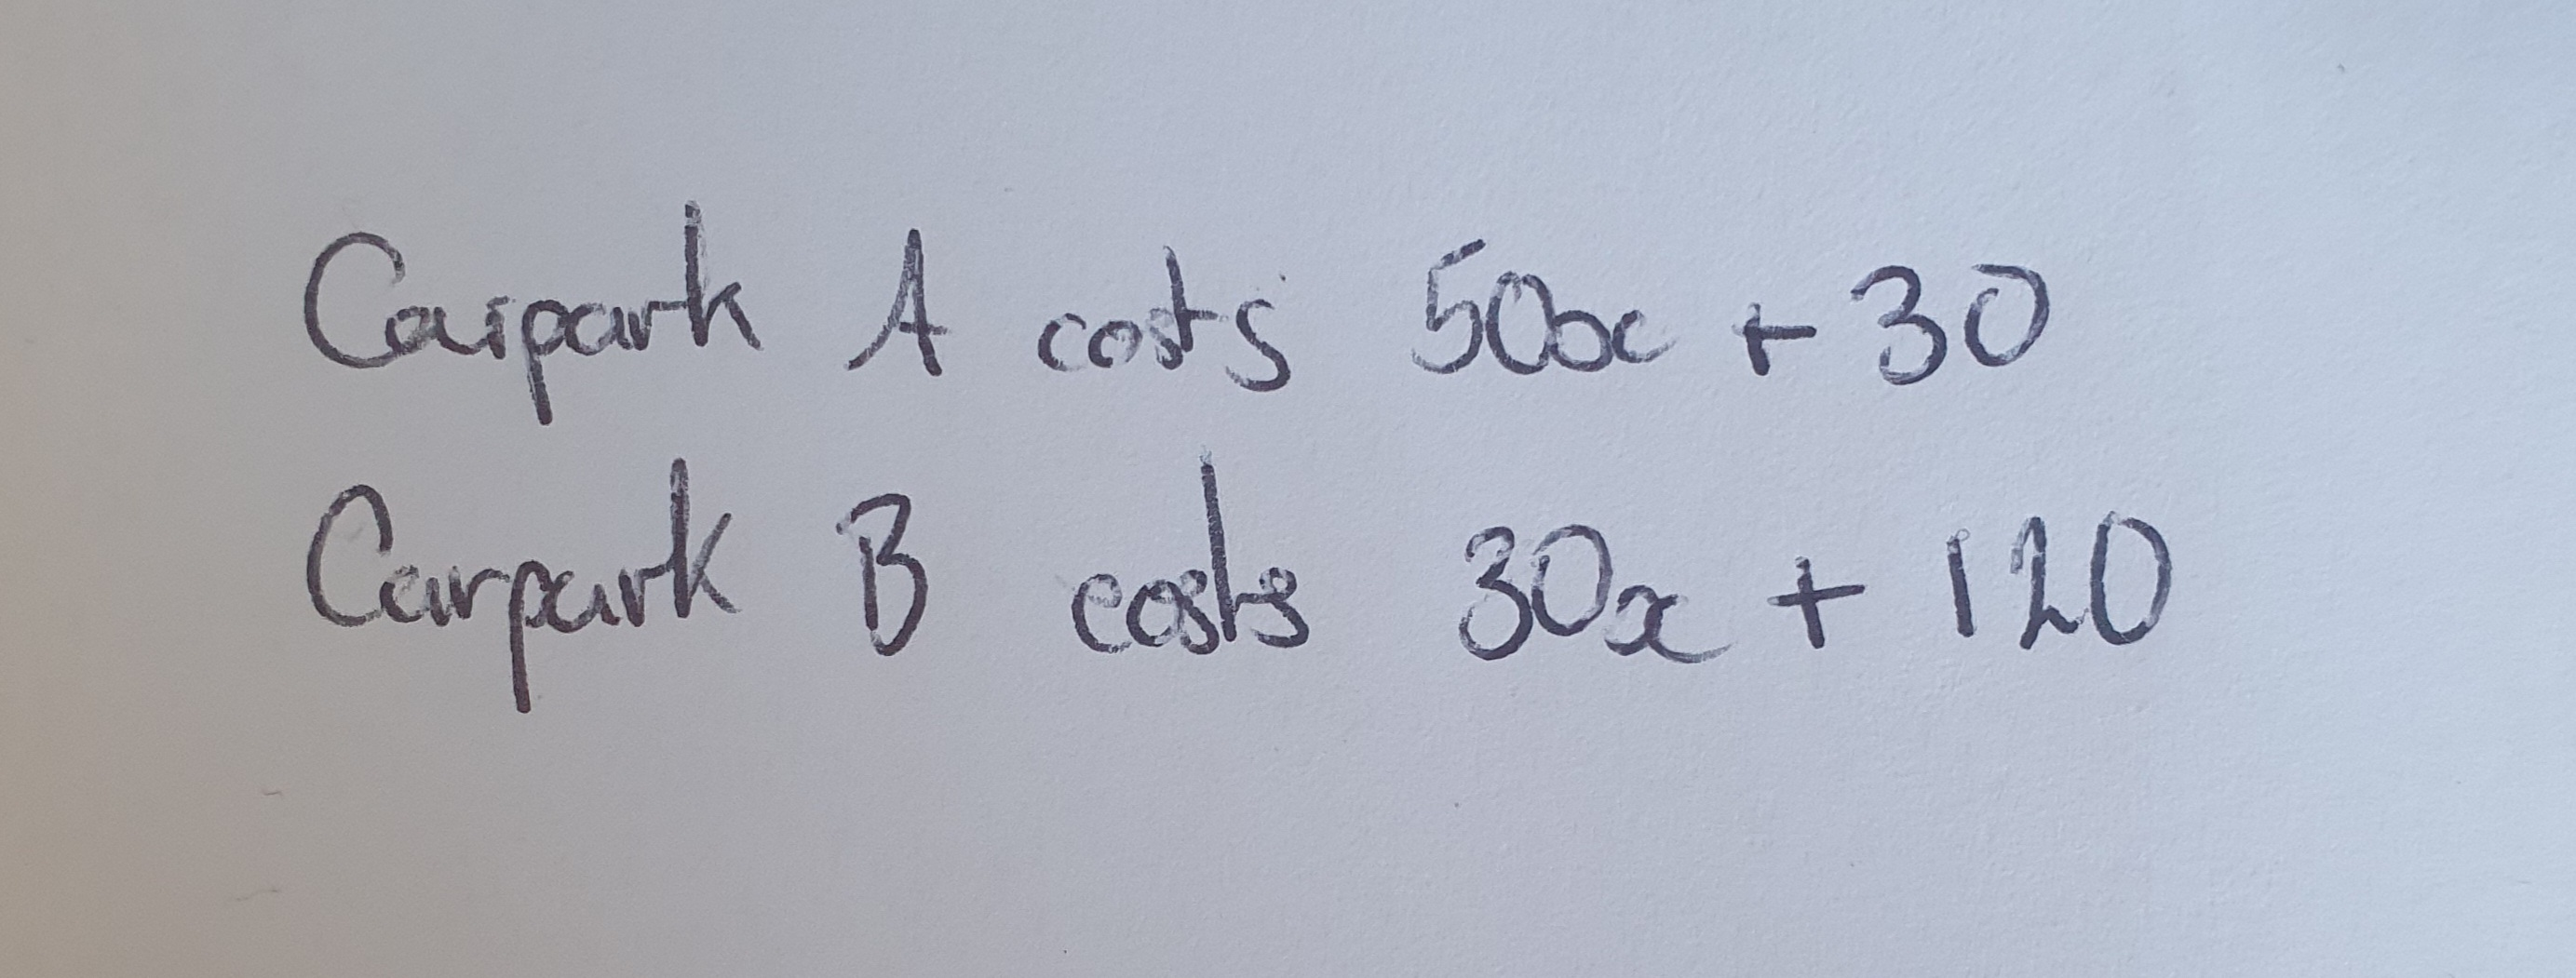 Carpark A costs 50x + 30
Carpark B costs 30x + 120